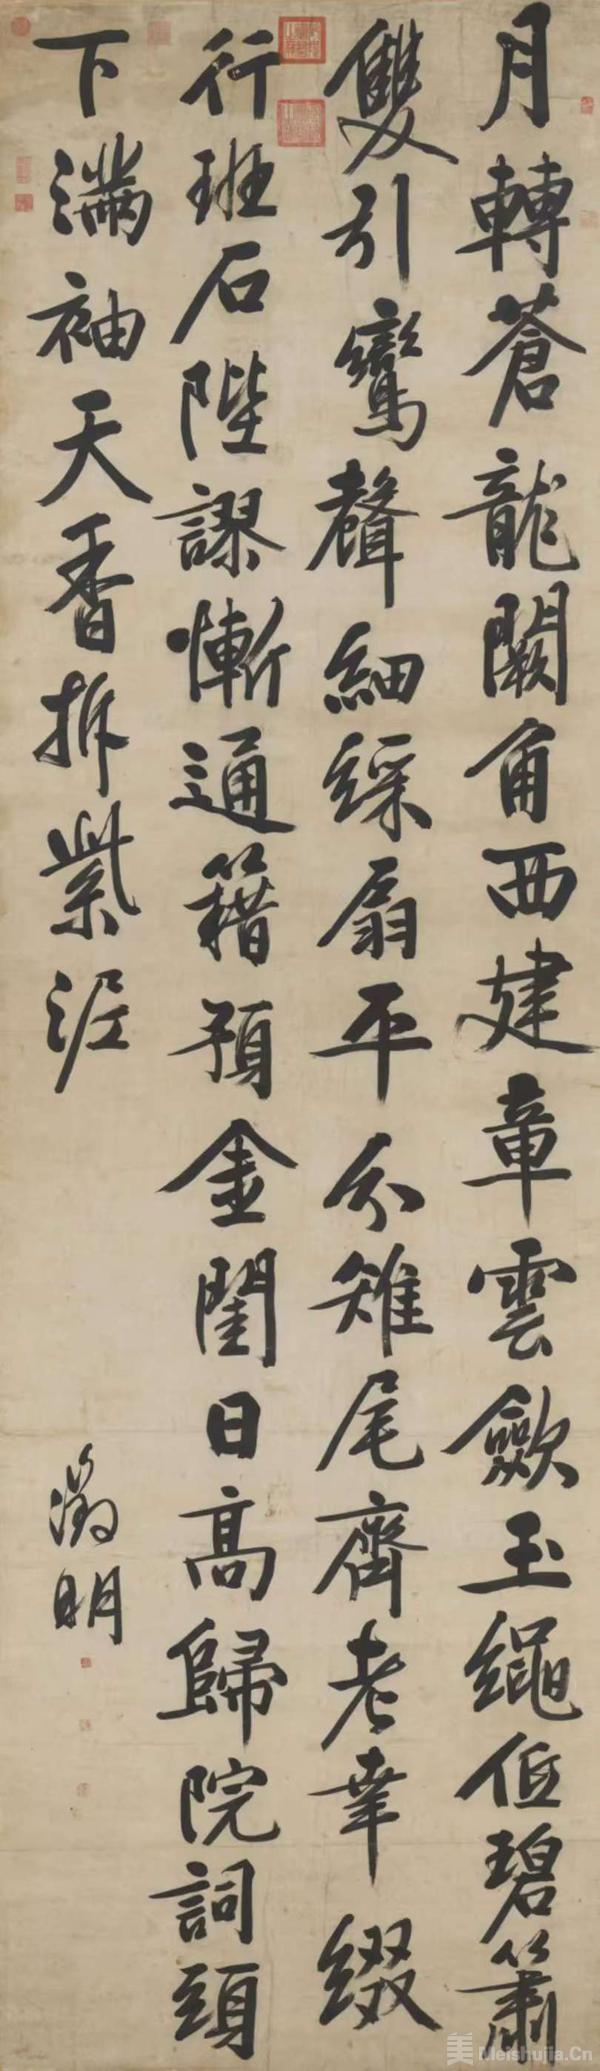 月轉蒼龍闕角西建章雲斂玉繩低碧簫
雙引鸞聲細綵扇平分雉尾齊老幸綴
行班石陛謬慚通籍預金閨日高歸院詞頭
下滿袖天香拆紫泥
徵明
美 Meishujia.Cn